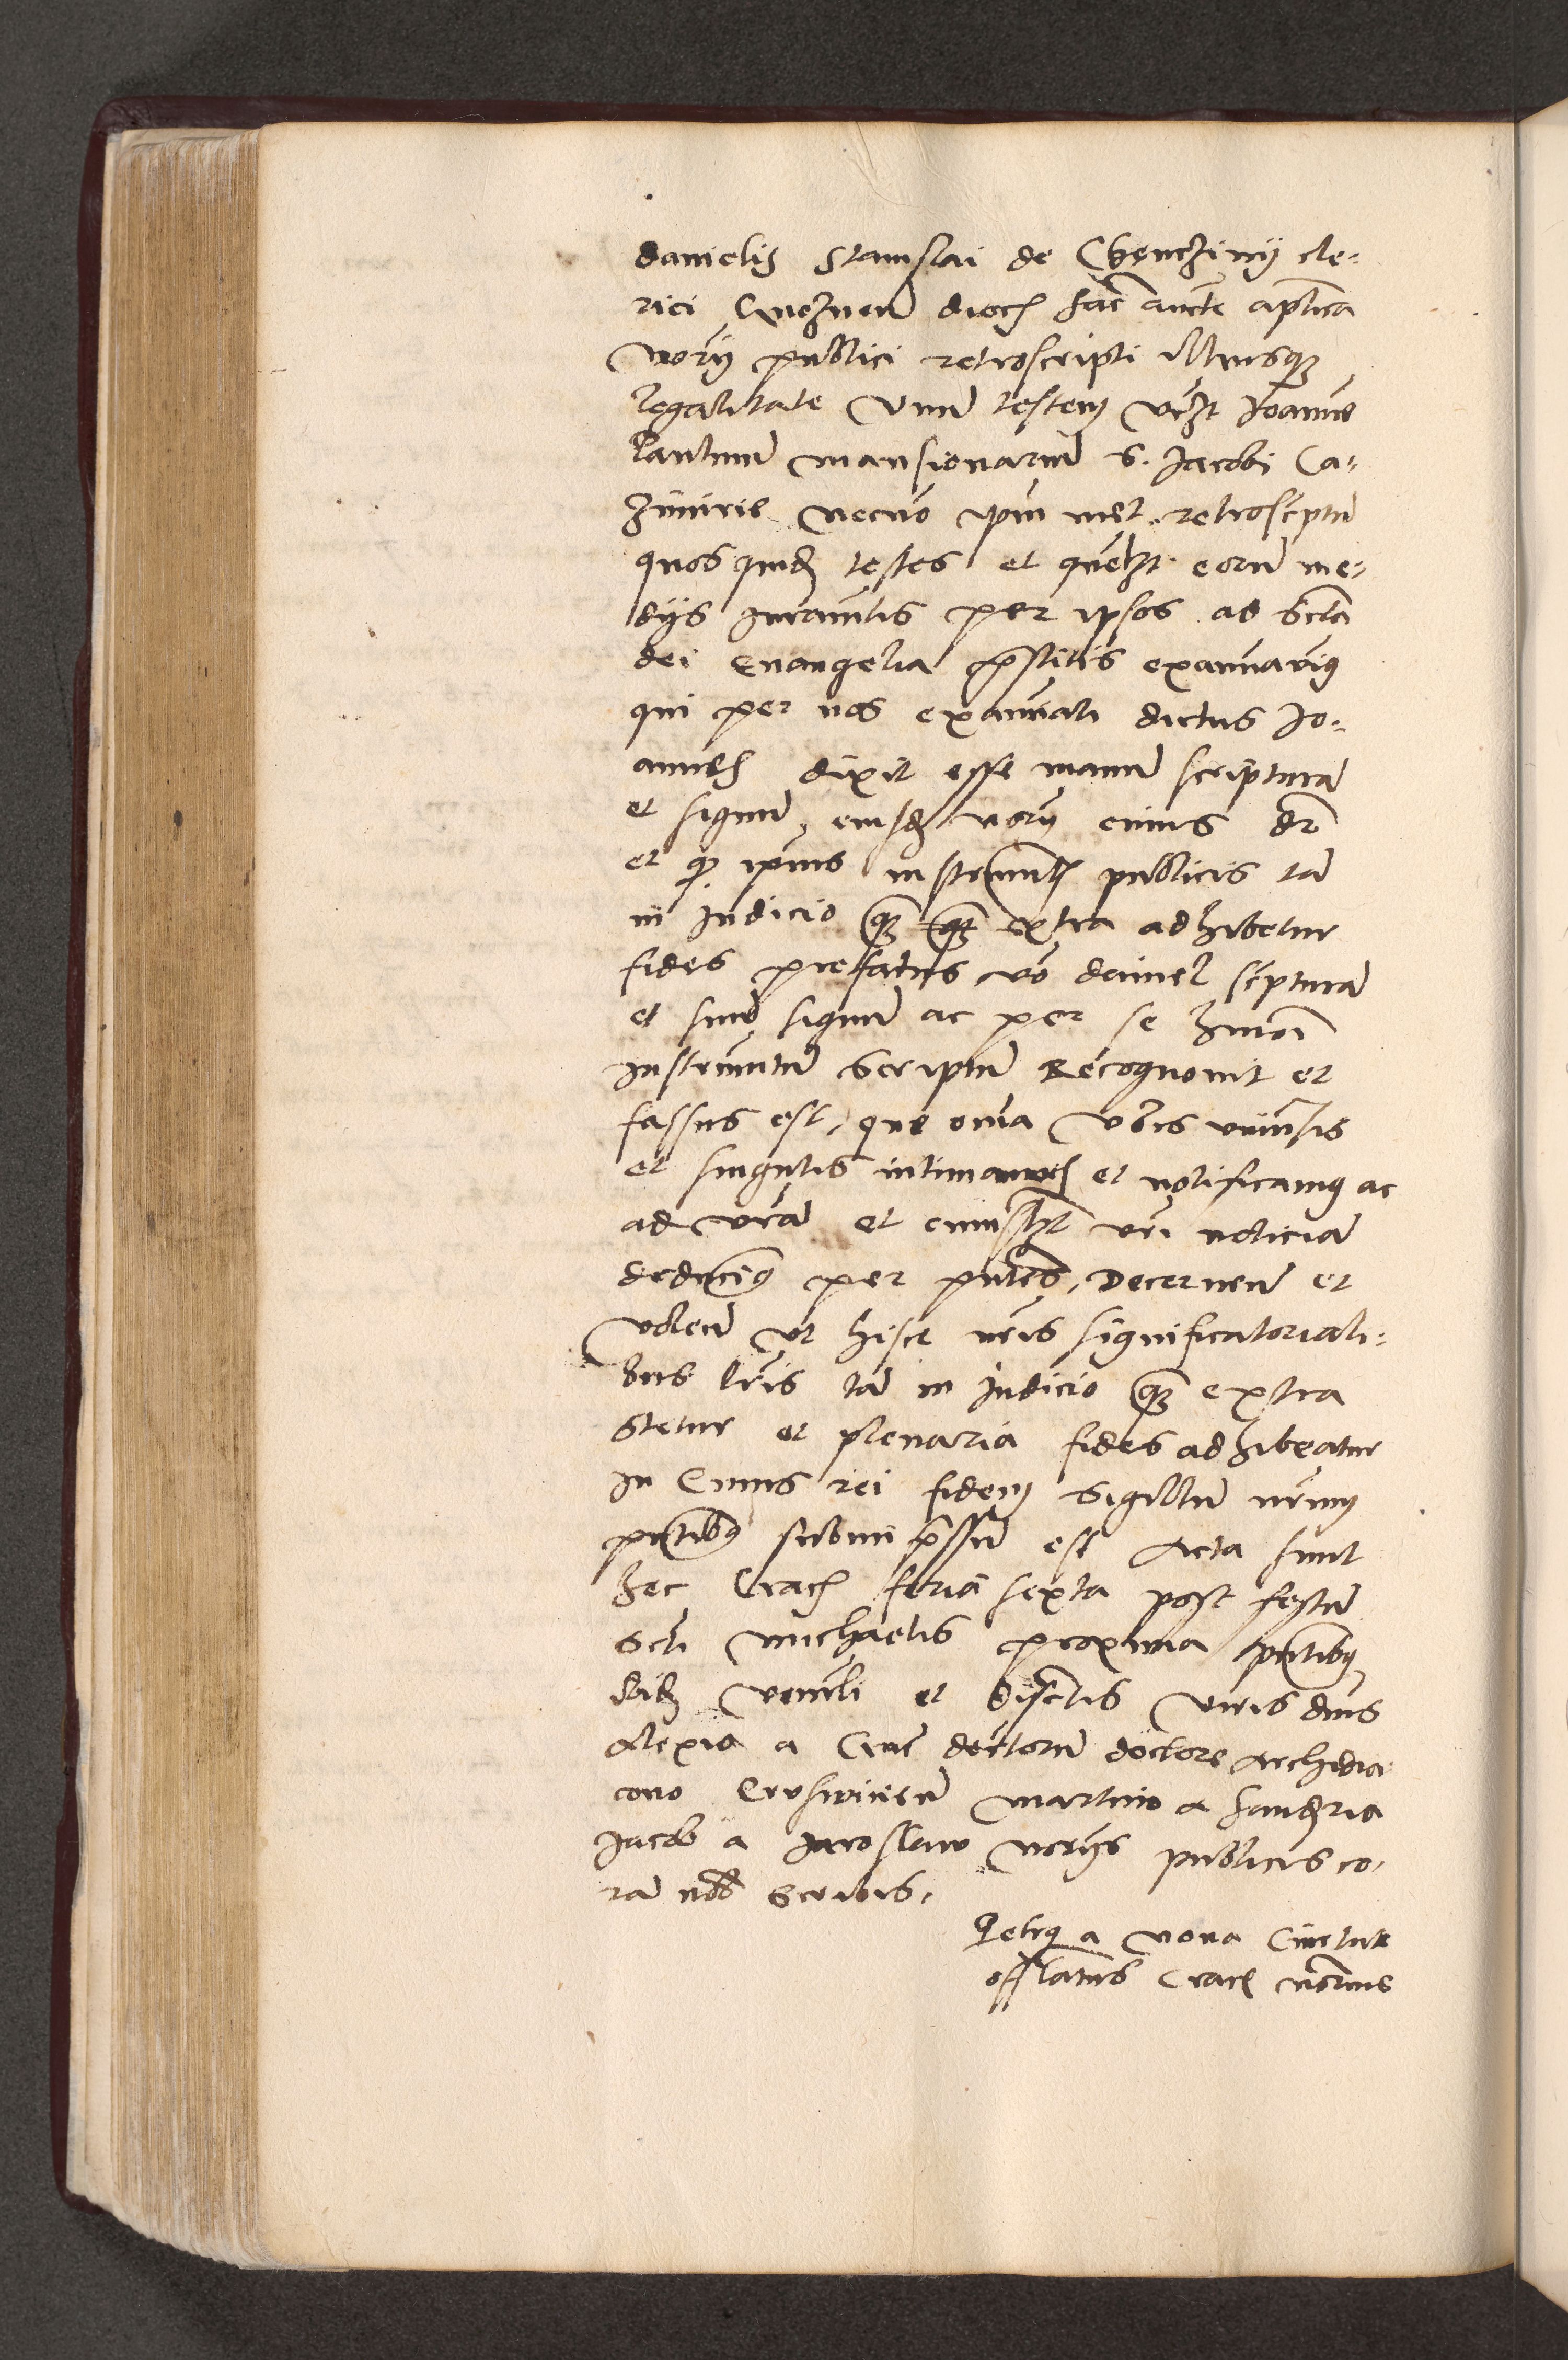 danielis Stanislai de Chenczini cle-
rici Gneznen dioc sac aucte aptica
nory publici retroscripti illiusque
legalitate unum testem vczt Joanne
mansionarium S. Jacobi Ca-
zimirie necno ipm met retroscptu
quos quidem testes et quelzt eorum me-
dys iuramtis per ipsos ad scta
dei evangelia pstitis examinavimus
qui per nos examinati dictus Jo-
annes dixit esse manum scripturam
et signum eiusdem nory cuius dr
et quod ipsius instrumentis publicis tam
in iudicio quam extra adhibetur
fides prefatus vo daniel scpturam
et suum signum ac per se hmoi
instrumentum scriptum recognovit et
fassus est, que omia vobis universis
et singulis intimamus et notificamus ac
ad vram et cuiuslzt vri noticiam
deducimus per pntes, Decernen et
volen ut hisce nris significatoriali-
bus lris tam in iudicio quam extra
stetur et plenaria fides adhibeatur
in Cuius rei fidem sigillum nrum
pntibus subimpressum est Acta sunt
hec Crac feria sexta post festum
scti michaelis proxima pntibus
ibidem venerabili et discretis viris dnis
Alexio a decretorum doctore Archidia-
cono Crusvicien martino a
Jacob a Jaroslaw norys publicis co-
ram nobis scribis.
Petrus a nova Civitate
offlatus Crac notarius